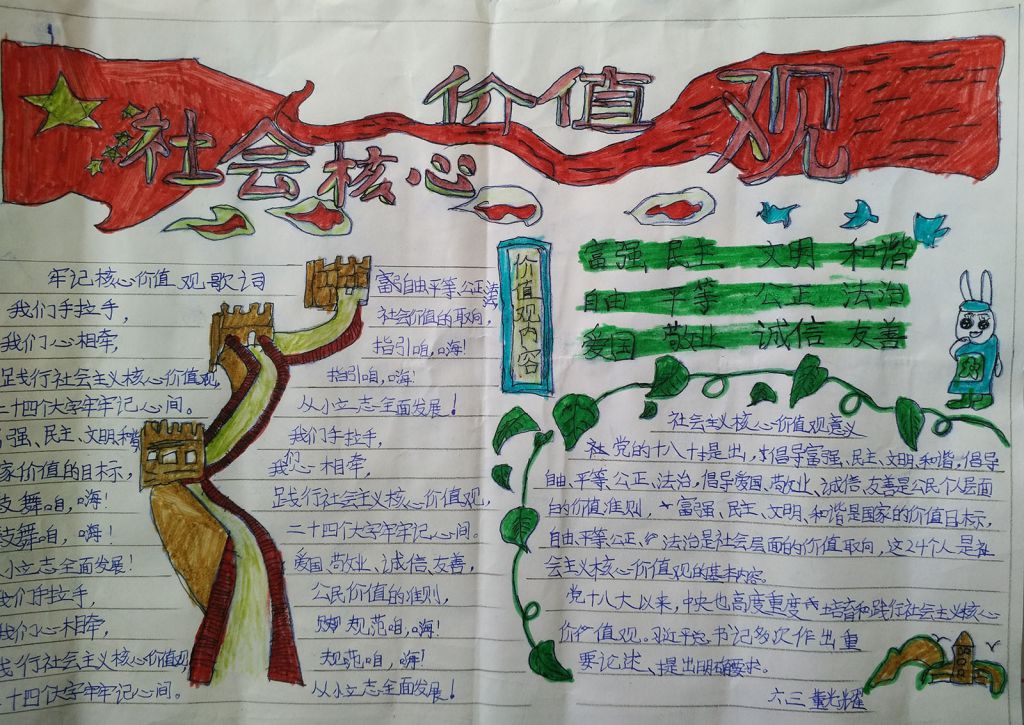 社会核心价值观
牢记核心价值观歌词
我们手拉手,
我们心相牵,
践行社会主义核心价值观,
二十四个大字牢牢记心间。
强、民主、文明、和谐
家价值的目标,
舞咱,嗨!
舞咱,嗨!
小立志全面发展!
我们手拉手,
我们心相牵,
践行社会主义核心价值观
二十四个大字牢牢记心间。
自由、平等、公正、法
社会价值的取向,
指引咱,嗨!
指引咱,嗨!
从小立志全面发展!
我们手拉手,
我们心相牵,
践行社会主义核心价值观,
二十四个大字牢牢记心间。
爱国、敬业、诚信、友善,
公民价值的准则,
规范咱,嗨!
规范咱,嗨!
从小立志全面发展!
价值观内容
富强 民主 文明 和谐
自由 平等 公正 法治
爱国 敬业 诚信 友善
社会主义核心价值观意义
党的十八大提出,倡导富强、民主、文明、和谐,倡导
自由、平等、公正、法治,倡导爱国、敬业、诚信、友善是公民个人层面
的价值准则,富强、民主、文明、和谐是国家的价值目标,
自由、平等、公正、法治是社会层面的价值取向,这24个人是社
会主义核心价值观的基本内容。
党十八大以来,中央也高度重度培育和践行社会主义核心
价值观。习近平总书记多次作出重
要论述、提出明确要求。
六三 董光耀